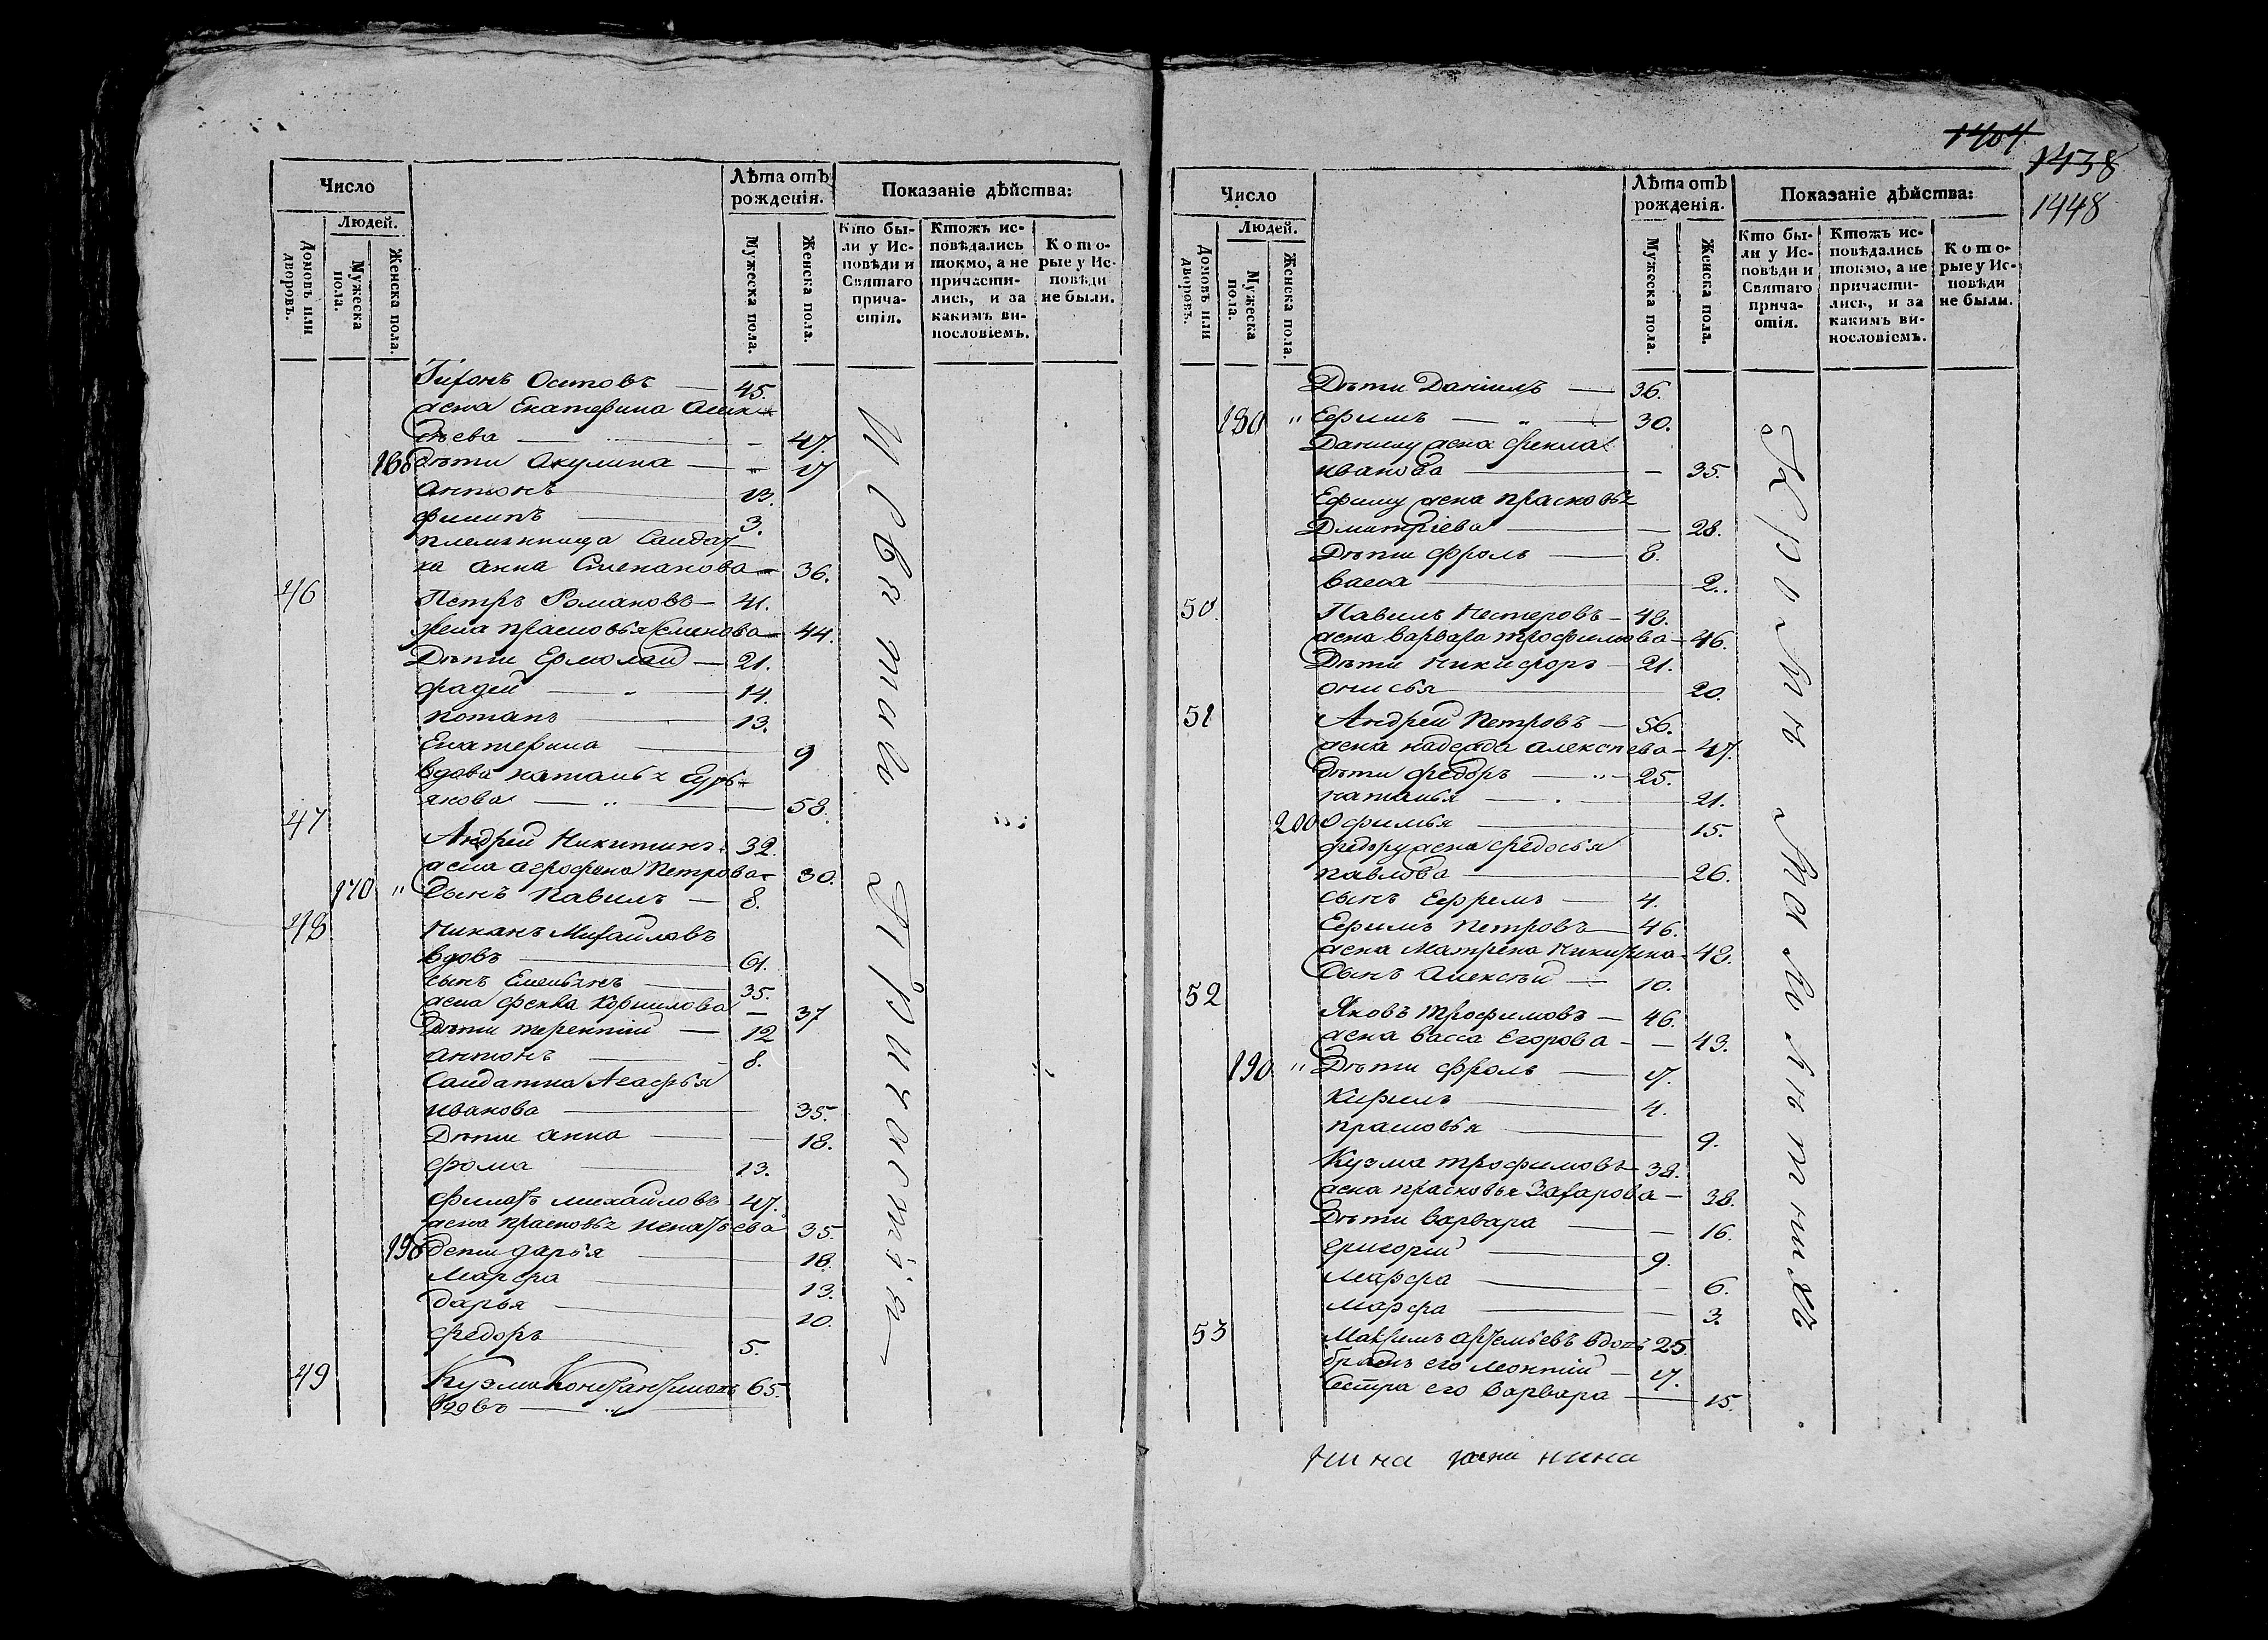 Число
Людей.
Домовъ или дворовъ.
Мужеска пола.
Женска пола.
Лѣта отъ рожденія.
Мужеска пола.
Женска пола.
Показаніе дѣйства:
Кто бы-
ли у Ис-
повѣди и
Святаго
прича-
стія.
Ктожъ ис-
повѣдались
токмо, а не
причасти-
лись, и за
какимъ ви-
нословіемъ.
Кото-
рые у Ис-
повѣди
не были.
Тихонъ Осиповъ — 45.
жена Екатерина Алек-
сѣева — 47.
дѣти Акулина — 17
Антонъ 13.
Филипъ — 3.
племянница Салдат-
ка Анна Степанова — 36.
46 Петръ Романовъ — 41.
жена Прасковья Семенова — 44.
Дѣти Ермолай — 21.
Фадей — 14.
Потапъ — 13.
Екатерина — 9
вдова Наталья
58.
47 Андрей Никитинъ 32.
жена Агрофена Петрова — 30.
170 " Сынъ Павилъ — 8.
48 Михайловъ
вдовъ — 61.
сынъ Емельянъ — 35.
жена Фекла Корнилова — 37
Дѣти Терентій — 12
Антонъ — 8.
Салдатка Агафья
Иванова — 35.
Дѣти Анна — 18.
Фома — 13.
Филатъ Михайловъ 47.
жена Прасковья Игнатьева 35.
дети Дарья — 18.
Марфа — 13.
Дарья — 10.
Федоръ 5.
49 Кузма Константиновъ 65.
вдовъ —
Исповѣди и Святаго
Причастія
1404
1438
1448
Число
Людей.
Домовъ или дворовъ.
Мужеска пола.
Женска пола.
Лѣта отъ рожденія.
Мужеска пола.
Женска пола.
Показаніе дѣйства:
Кто бы-
ли у Ис-
повѣди и
Святаго
прича-
стія.
Ктожъ ис-
повѣдались
токмо, а не
причасти-
лись, и за
какимъ ви-
нословіемъ.
Кото-
рые у Ис-
повѣди
не были.
Дѣти Даніилъ — 36.
180 " Ефимъ — 30.
Данилу жена Фекла
Иванова — 35.
Ефиму жена Прасковья
Дмитріева — 28.
Дѣти Фролъ — 8.
Васса 2.
50. Павилъ Нестеровъ — 48.
жена Варвара Трофимова — 46.
Дѣти Никифоръ — 21.
Онисья 20.
51 Андрей Петровъ — 56.
жена Надежда Алексѣева — 47.
Дѣти Федоръ — 25.
Наталья — 21.
200 Офимья 15.
Федору жена Федосья
Павлова — 26.
сынъ Ефремъ — 4.
Ефимъ Петровъ — 46.
жена Матрена Никитина — 48.
Сынъ Алексѣй — 10.
52 Яковъ Трофимовъ — 46.
жена Васса Егорова — 43.
190 " Дѣти Фролъ — 17.
Кирилъ — 4.
Прасковья — 9.
Кузма Трофимовъ — 38.
жена Прасковья Захарова — 38.
Дѣти Варвара — 16.
Григорій — 9.
Марфа — 6.
Марфа — 3.
53 Максимъ Артемьевъ вдовъ 25.
братъ его Леонтій — 17.
Сестра его Варвара — 15.
нина нина